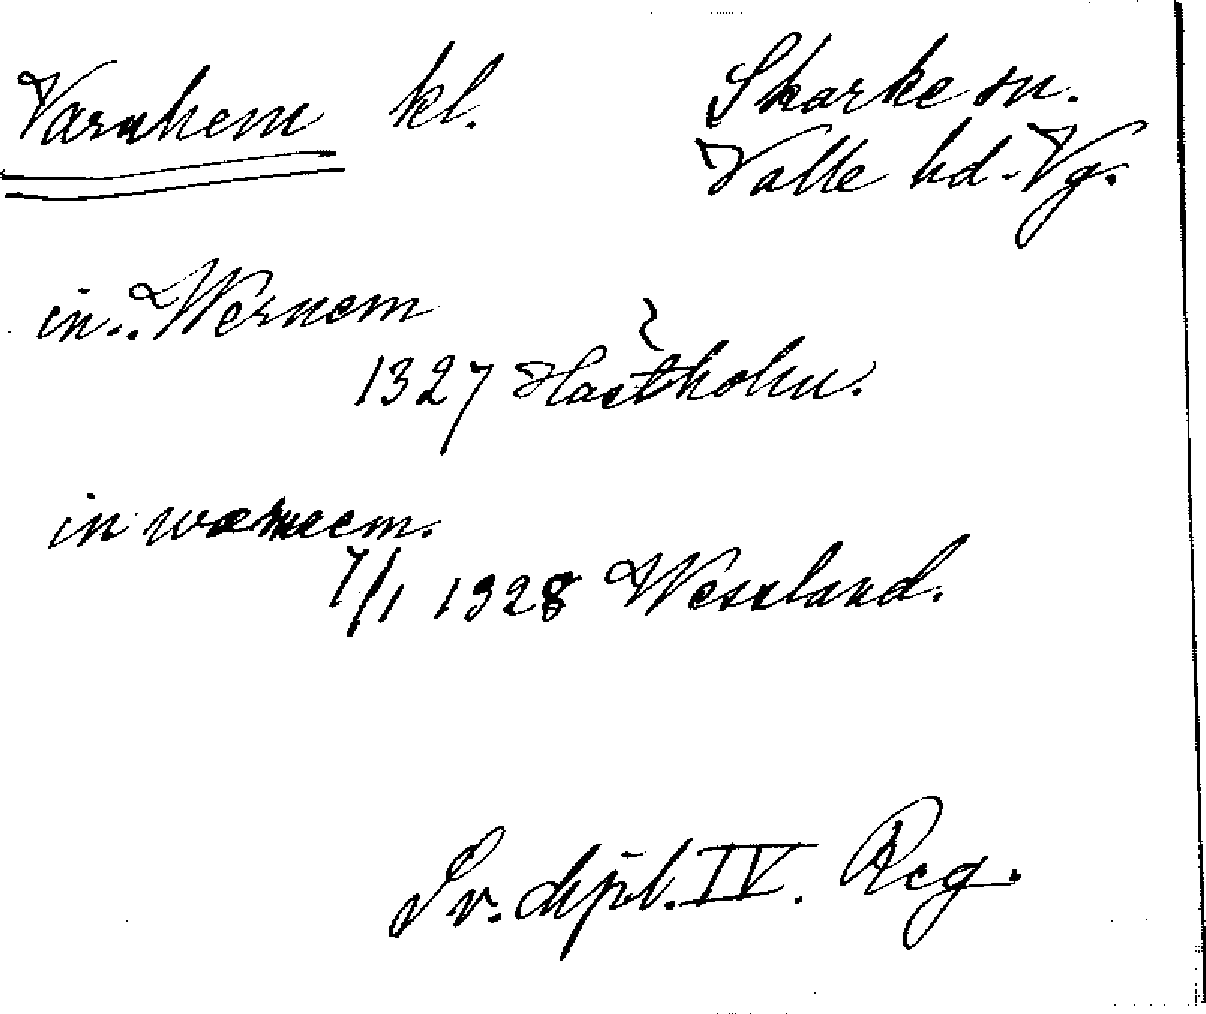 Varnhem kl.
Skarke sn.
Valle hd. Vg.
in.. Wernem
1327 Hästholm.
in wærneem.
7/1 1328 Weseland.
Sv. dipl. IV. Reg.